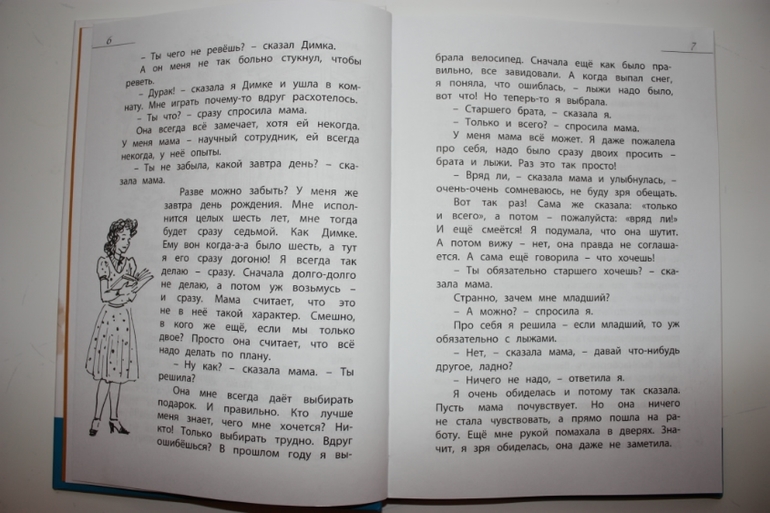 6
– Ты чего не ревёшь? – сказал Димка.
А он меня не так больно стукнул, чтобы
реветь.
– Дурак! – сказала я Димке и ушла в ком-
нату. Мне играть почему-то вдруг расхотелось.
– Ты что? – сразу спросила мама.
Она всегда всё замечает, хотя ей некогда.
У меня мама – научный сотрудник, ей всегда
некогда, у неё опыты.
– Ты не забыла, какой завтра день? – ска-
зала мама.
Разве можно забыть? У меня же
завтра день рождения. Мне испол-
нится целых шесть лет, мне тогда
будет сразу седьмой. Как Димке.
Ему вон когда-а-а было шесть, а тут
я его сразу догоню! Я всегда так
делаю – сразу. Сначала долго-долго
не делаю, а потом уж возьмусь –
и сразу. Мама считает, что это
не в неё такой характер. Смешно,
в кого же ещё, если мы только
двое? Просто она считает, что всё
надо делать по плану.
– Ну как? – сказала мама. – Ты
решила?
Она мне всегда даёт выбирать
подарок. И правильно. Кто лучше
меня знает, чего мне хочется? Ни-
кто! Только выбирать трудно. Вдруг
ошибёшься? В прошлом году я вы-
7
брала велосипед. Сначала ещё как было пра-
вильно, все завидовали. А когда выпал снег,
я поняла, что ошиблась, – лыжи надо было,
вот что! Но теперь-то я выбрала.
– Старшего брата, – сказала я.
– Только и всего? – спросила мама.
У меня мама всё может. Я даже пожалела
про себя, надо было сразу двоих просить –
брата и лыжи. Раз это так просто!
– Вряд ли, – сказала мама и улыбнулась, –
очень-очень сомневаюсь, не буду зря обещать.
Вот так раз! Сама же сказала: «только
и всего», а потом – пожалуйста: «вряд ли!»
И ещё смеётся! Я подумала, что она шутит.
А потом вижу – нет, она правда не соглаша-
ется. А сама ещё говорила – что хочешь!
– Ты обязательно старшего хочешь? – ска-
зала мама.
Странно, зачем мне младший?
– А можно? – спросила я.
Про себя я решила – если младший, то уж
обязательно с лыжами.
– Нет, – сказала мама, – давай что-нибудь
другое, ладно?
– Ничего не надо, – ответила я.
Я очень обиделась и потому так сказала.
Пусть мама почувствует. Но она ничего
не стала чувствовать, а прямо пошла на ра-
боту. Ещё мне рукой помахала в дверях. Зна-
чит, я зря обиделась, она даже не заметила.